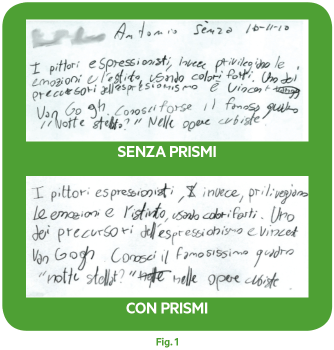 Antonio Senza 10-11-10
I pittori espressionisti, invece privilegiano le
emozioni e l'istinto, usando colori forti. Uno dei
precursori dell'espressionismo è Vincent
Van Gogh. Conosci forse il famoso quadro
"Notte stellat?" Nelle opere cubiste
SENZA PRISMI
I pittori espressionisti, invece, prilivegiano
le emozioni e l'istinto, usando colori forti. Uno
dei precursori dell'espressionismo è Vincet
Van Gogh Conosci il famosissimo quadro
"notte stellat?" nelle opere cubiste.
CON PRISMI
Fig. 1